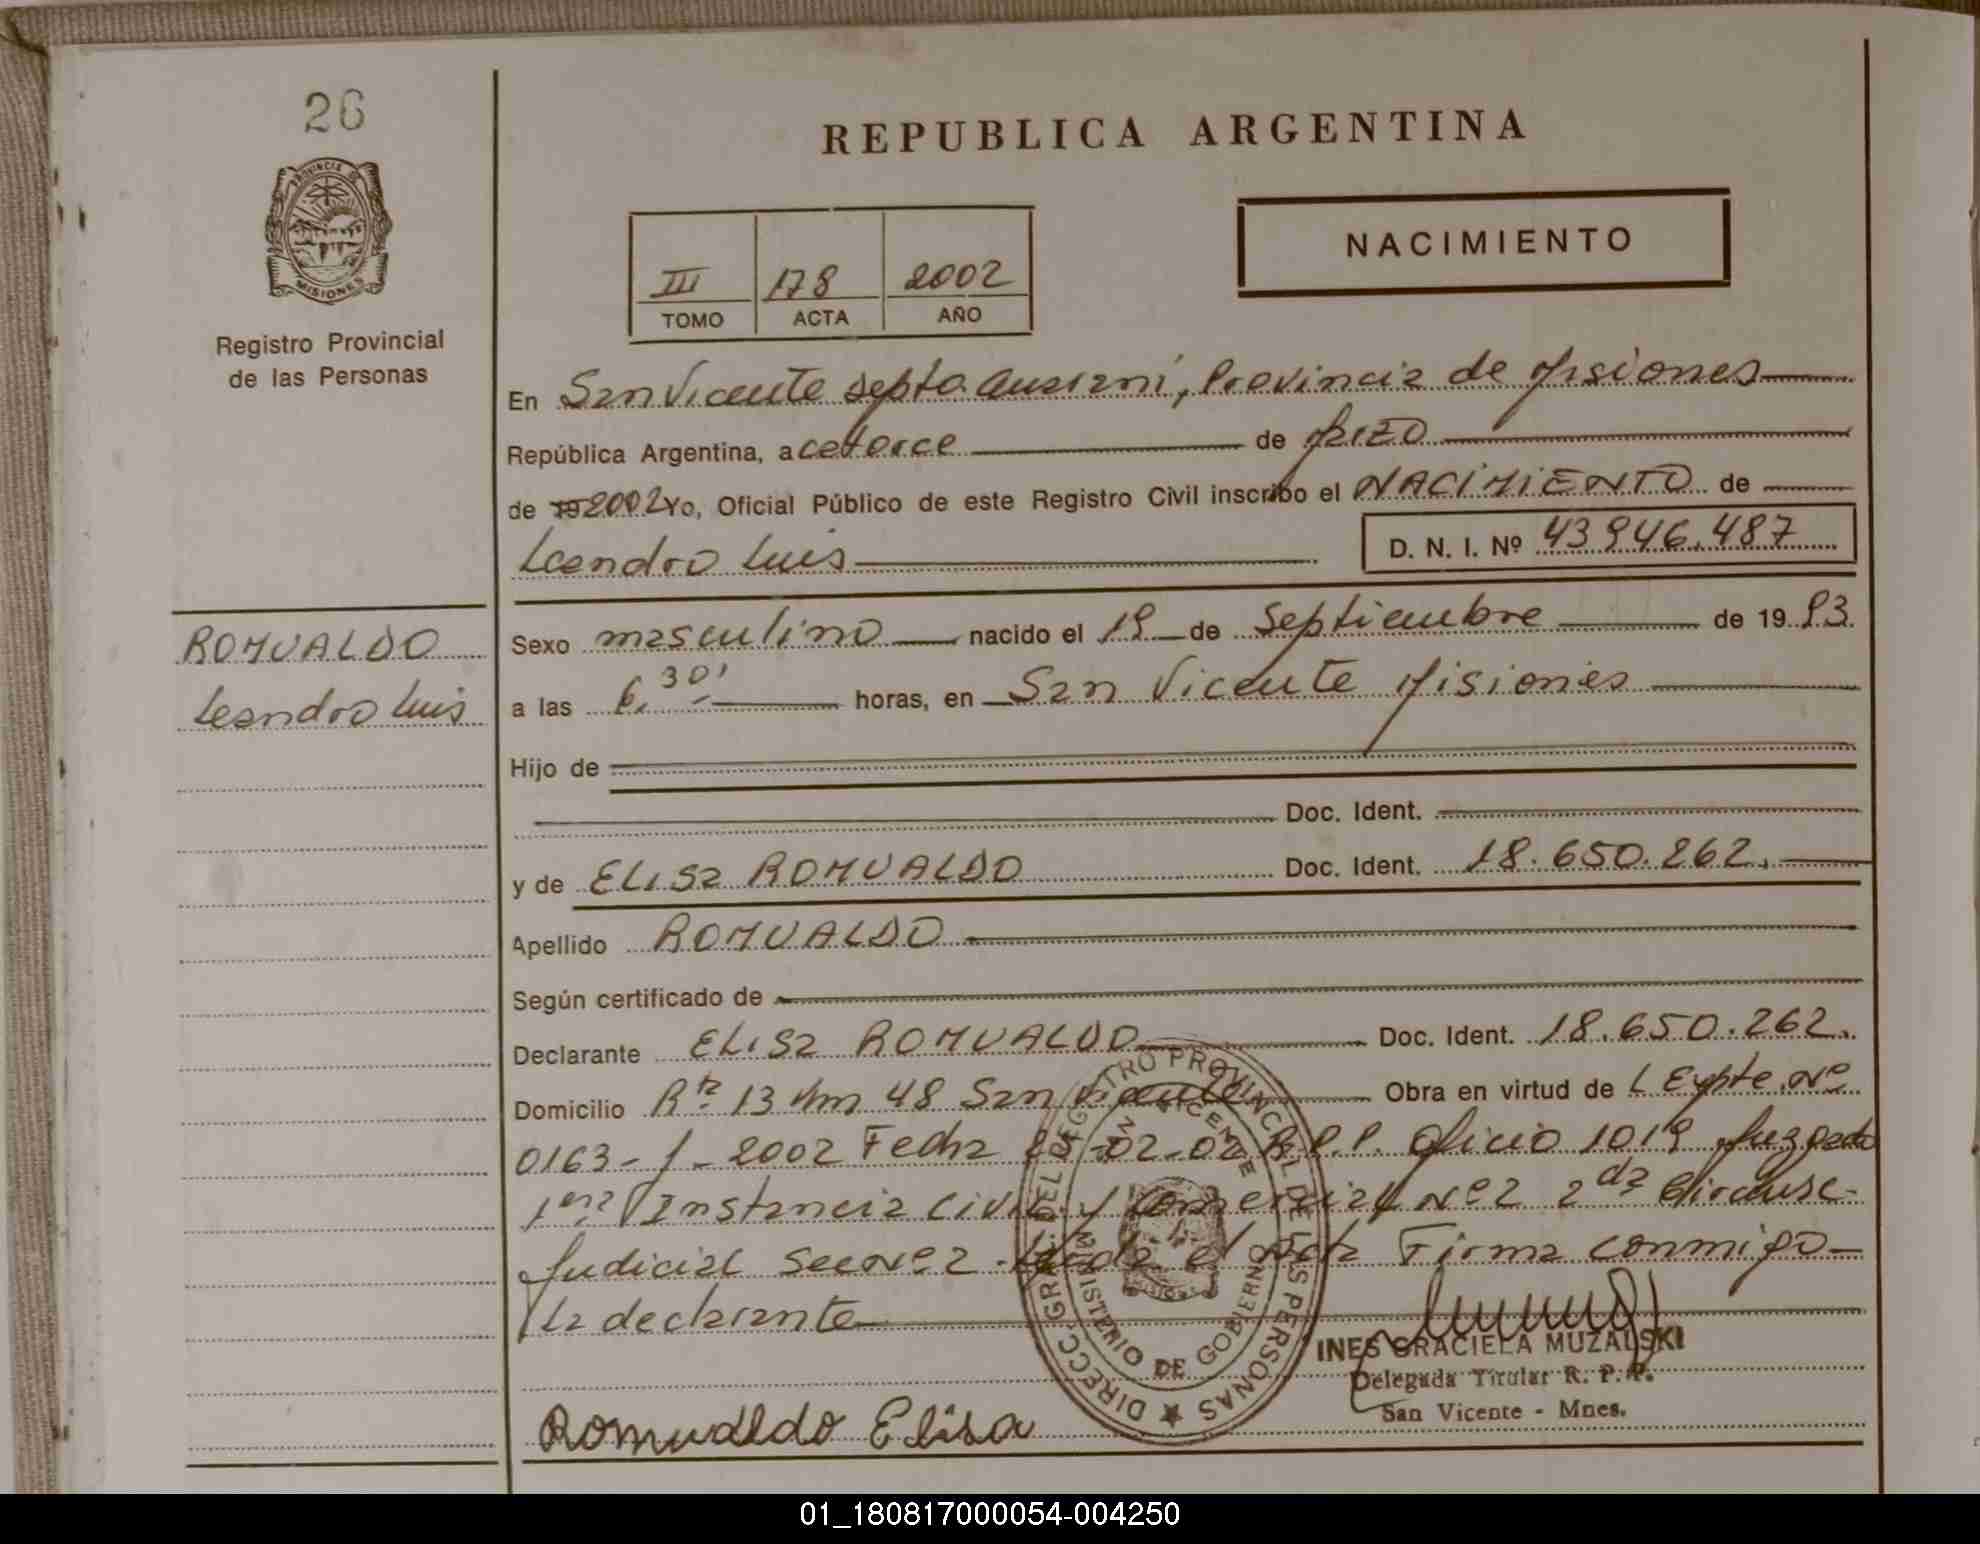 26
PROVINCIA DE
MISIONES
Registro Provincial
de las Personas
ROMUALDO
Leandro Luis
REPUBLICA ARGENTINA
NACIMIENTO
III 178 2002
TOMO ACTA AÑO
En San Vicente Depto Guaraní, Provincia de Misiones
República Argentina, a catorce de Marzo
de 19 2002 Yo, Oficial Público de este Registro Civil inscribo el NACIMIENTO de
Leandro Luis D. N. I. Nº 43946.487
Sexo masculino nacido el 19 de Septiembre de 19 93
a las 6.30' horas, en San Vicente Misiones
Hijo de
Doc. Ident.
y de ELISA ROMUALDO Doc. Ident. 18.650.262.
Apellido ROMUALDO
Según certificado de
Declarante ELISA ROMUALDO Doc. Ident. 18.650.262.
Domicilio Rta 13 Km 48 San Vicente Obra en virtud de Expte Nº
0163 - 2002 Fecha 02-02 R.P.P. Oficio 1019 Juzgado
1era Instancia Civil y Comercial Nº 2 2da Circunsc-
Judicial Sec Nº 2 el Acta Firma conmigo
la declarante
DIRECC. GRAL. DEL REGISTRO PROVINCIAL DE LAS PERSONAS
MINISTERIO DE GOBIERNO
SAN VICENTE
INES GRACIELA MUZALSKI
Delegada Titular R. P. P.
San Vicente - Mnes.
Romualdo Elisa
01_180817000054-004250